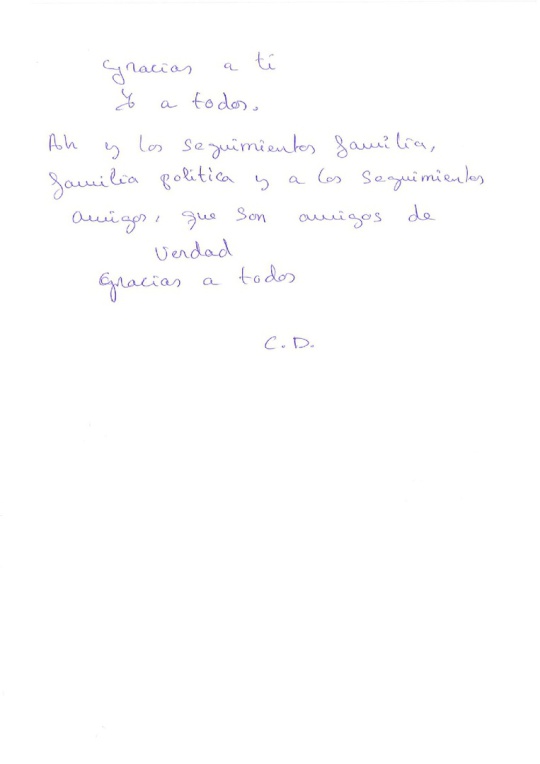 Gracias a ti
Y a todos.
Ah y los seguimientos familia,
familia politica y a los seguimientos
amigos, que son amigos de
verdad
Gracias a todos
C. D.